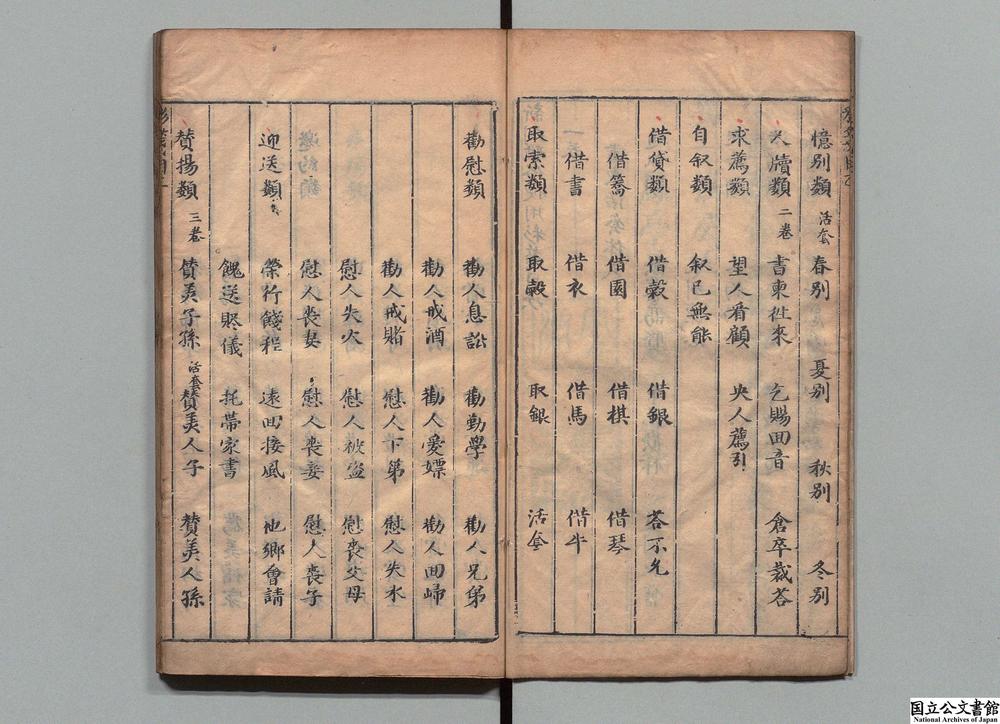 憶別類 活套 春別 夏別 秋別 冬別
尺牘類 二巻 書柬徃來 乞賜囬音 倉卒裁答
求薦類 望人看顧 央人薦引
自叙類 叙已無能
借貸類 借穀 借銀 答不允
借簥 借園 借棋 借琴
借書 借衣 借馬 借牛
取索類 取穀 取銀 活套
勸慰類 勸人息訟 勸勤學 勸人兄弟
勸人戒酒 勸人愛嫖 勸人囬歸
勸人戒賭 慰人下第 慰人失水
慰人失火 慰人被盗 慰喪父母
慰人喪妻 慰人喪妾 慰人喪子
迎送類 榮行餞程 遠囬接風 他鄉會請
餽送賍儀 托帶家書
賛揚類 三巻 賛美子孫 活套 賛美人子 賛美人孫
国立公文書館
National Archives of Japan